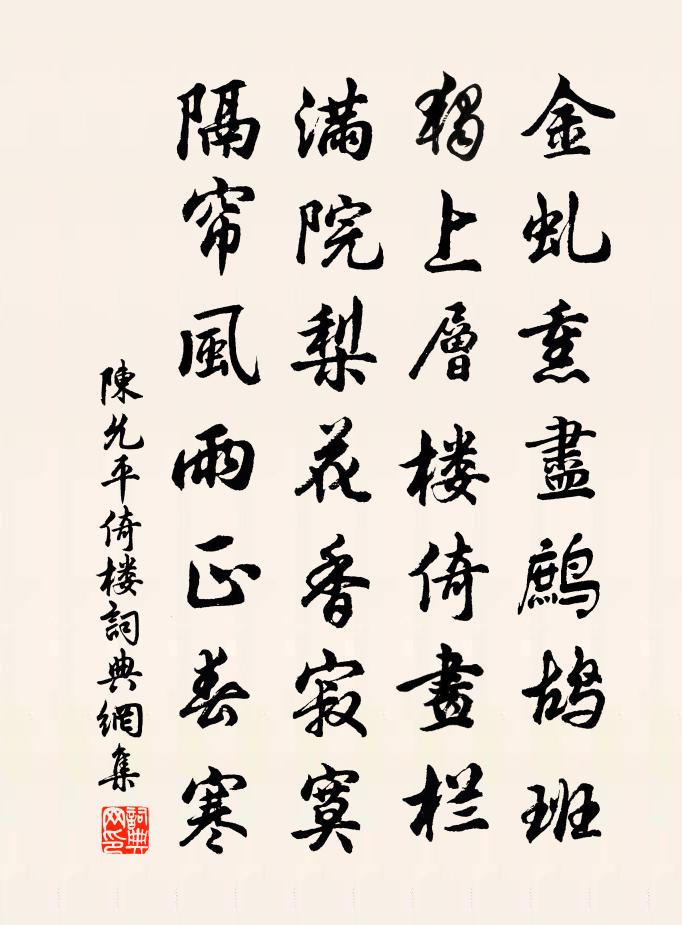 金虬熏盡鷓鸪班
獨上層楼倚畫栏
滿院梨花香寂寞
隔帘風雨正春寒
陳允平倚楼詞典網集
詞典網印